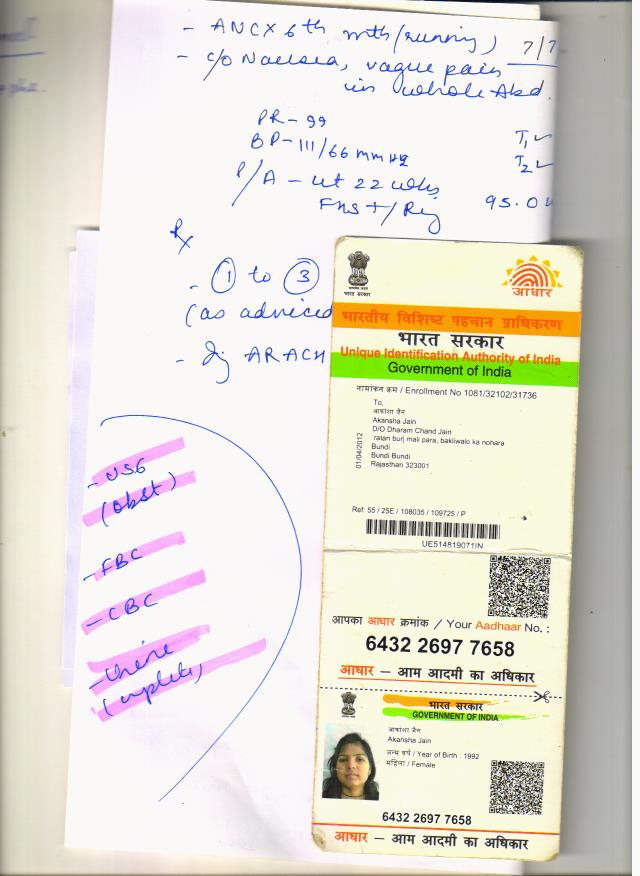 - ANCX 6th mth (running) 7/7
- c/o Nausea, vague pain
in whole Abd.
PR - 99
BP - 111/66 mmHg T1 ✓
P/A - ut 22 wks T2 ✓
FHS +/Reg 95.0
Rx
- ① to ③
(as adviced
- Inj ARACH
- USG
(obst)
- FBC
- CBC
- Urine
भारत सरकार
आधार
भारतीय विशिष्ट पहचान प्राधिकरण
भारत सरकार
Unique Identification Authority of India
Government of India
नामांकन क्रम / Enrollment No 1081/32102/31736
To,
आकांशा जैन
Akansha Jain
D/O Dharam Chand Jain
ratan burj mali para, bakliwalo ka nohara
Bundi
Bundi Bundi
Rajasthan 323001
01/04/2012
Ref: 55 / 25E / 108035 / 109725 / P
UE514819071IN
आपका आधार क्रमांक / Your Aadhaar No. :
6432 2697 7658
आधार — आम आदमी का अधिकार
भारत सरकार
GOVERNMENT OF INDIA
आकांशा जैन
Akansha Jain
जन्म वर्ष / Year of Birth : 1992
महिला / Female
6432 2697 7658
आधार — आम आदमी का अधिकार